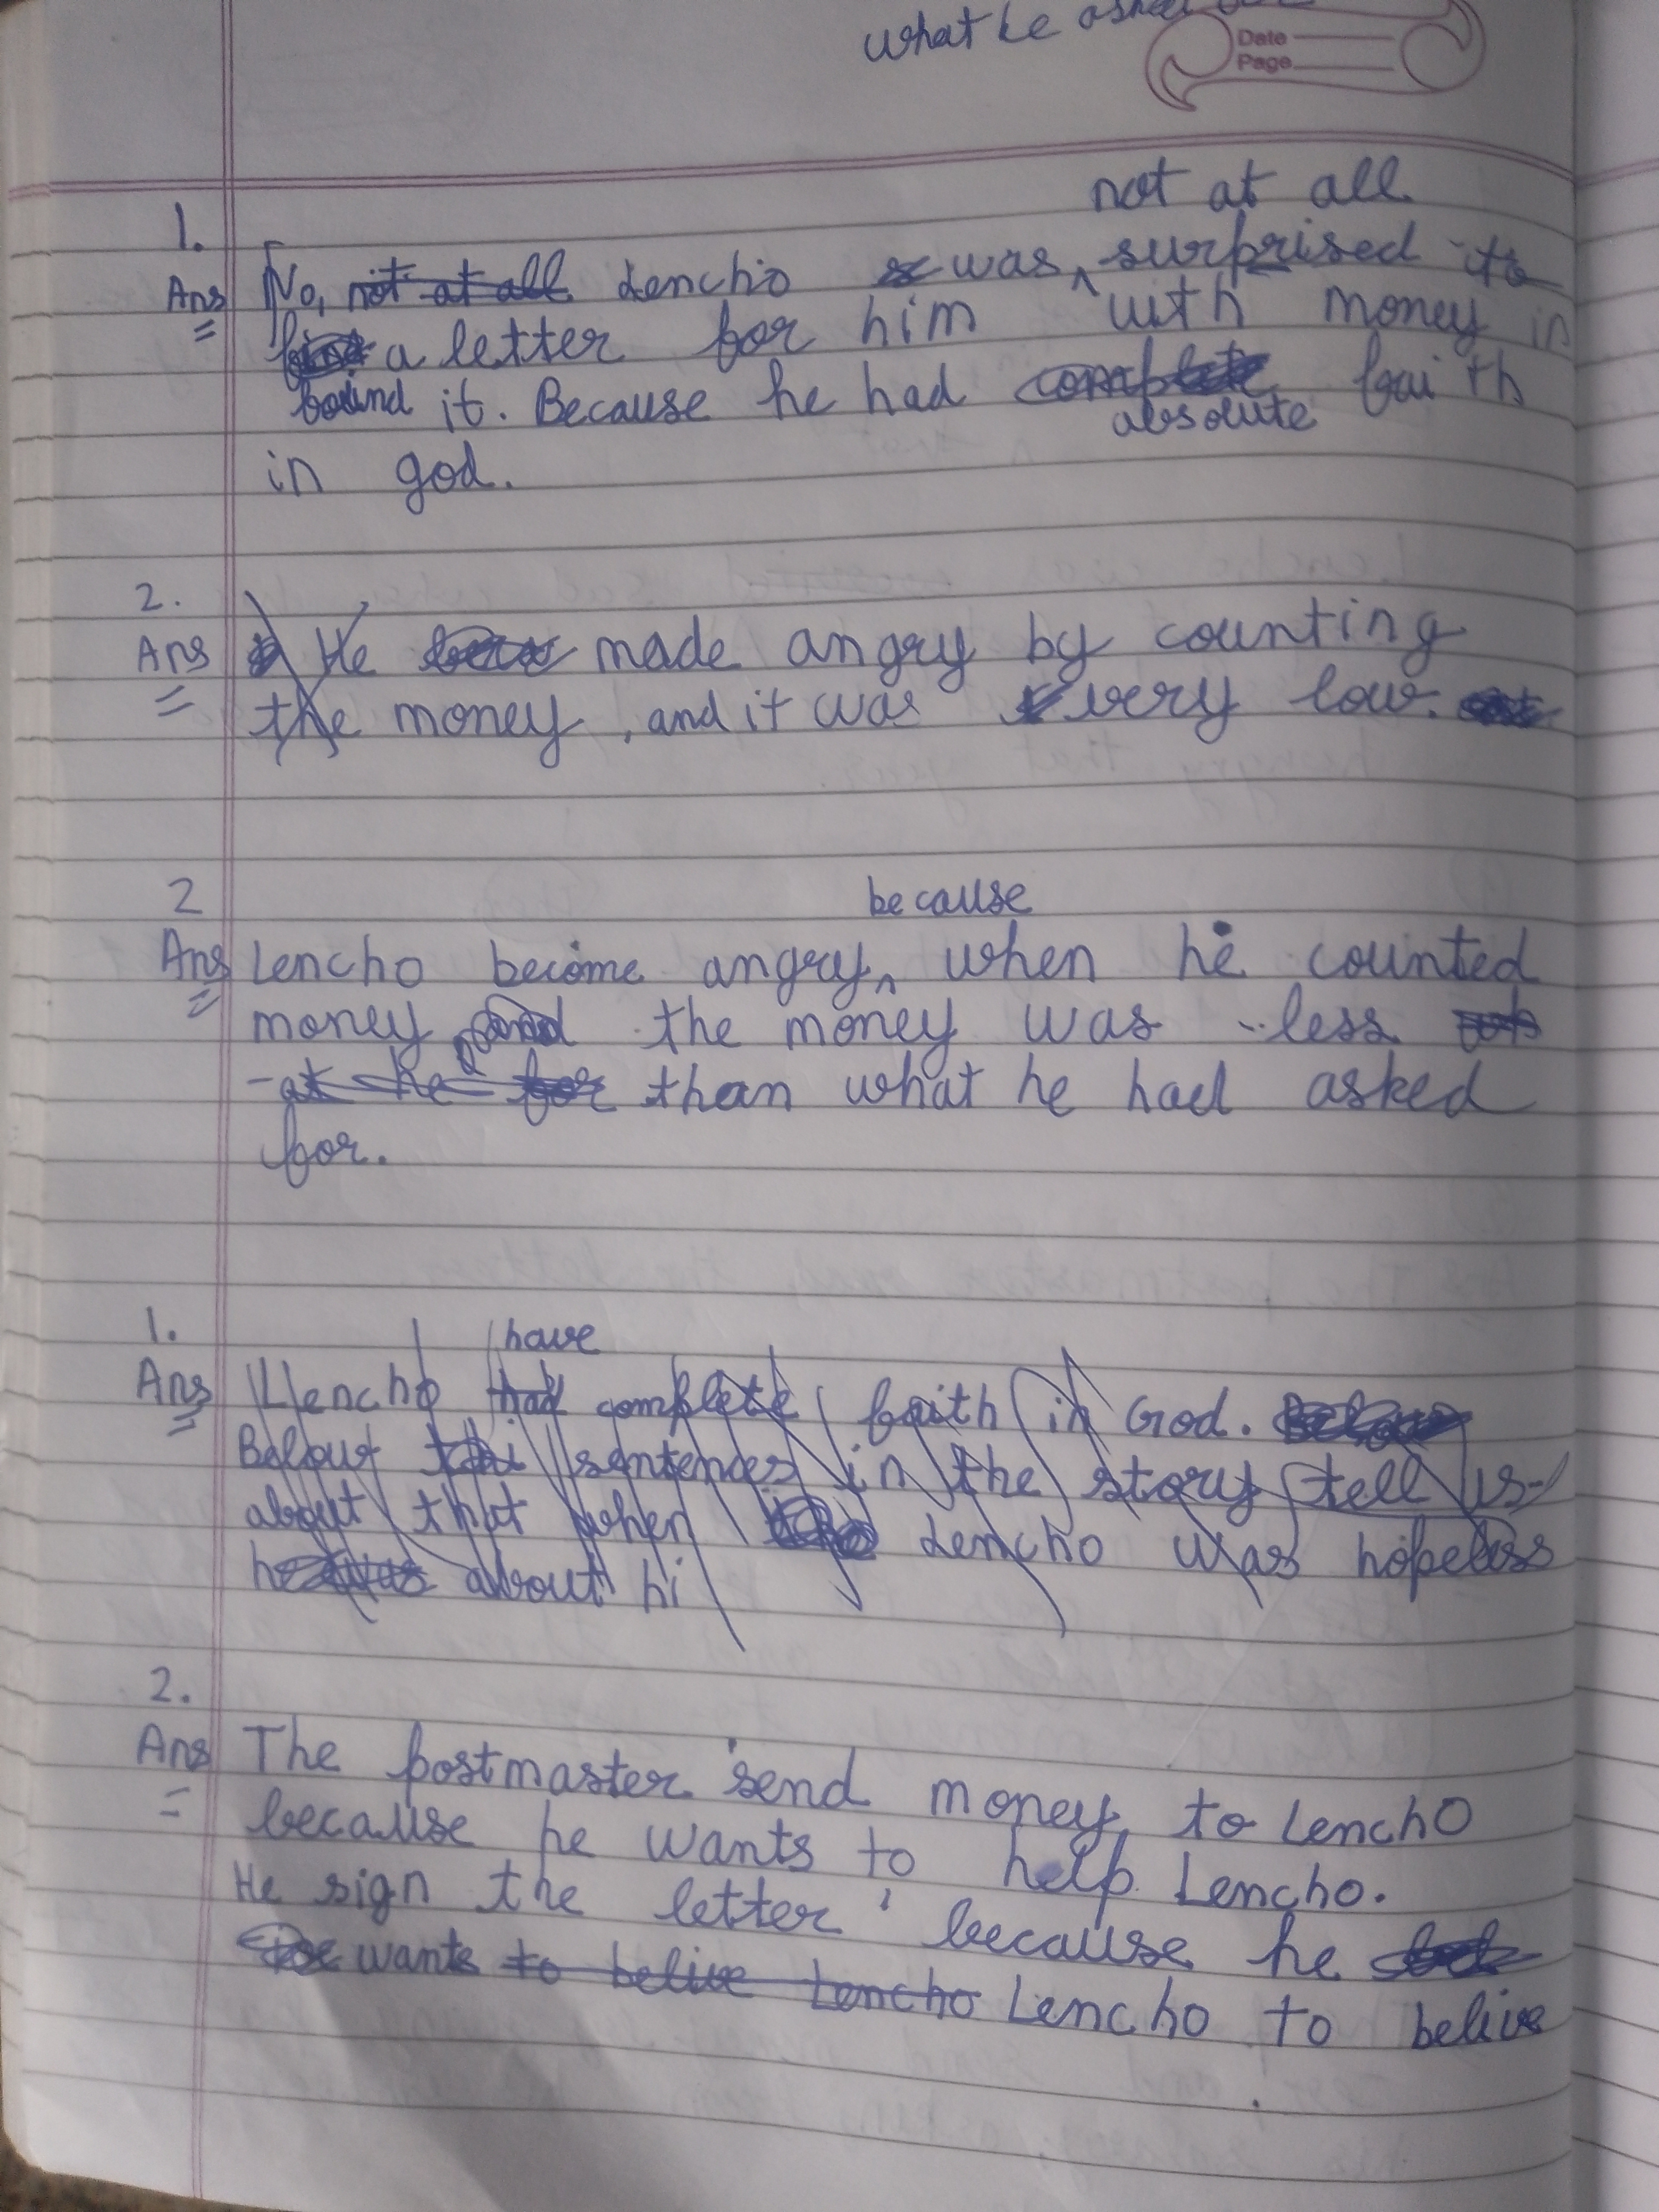 what he asked
Date
Page
not at all
1.
Ans No, not at all Lencho was surprised to
a letter for him with money in
found it. Because he had complete faith
absolute
in god.
2.
Ans He made angry by counting
the money, and it was very low.
2
because
Ans Lencho become angry, when he counted
money and the money was less
at he for than what he had asked
for.
1.
have
Ans Lencho had complete faith in God.
sentences in the story tell us
about that when Lencho was hopeless
he was about hi
2.
Ans The postmaster send money to Lencho
because he wants to help Lencho.
He sign the letter because he
wants to belive Lencho Lencho to belive